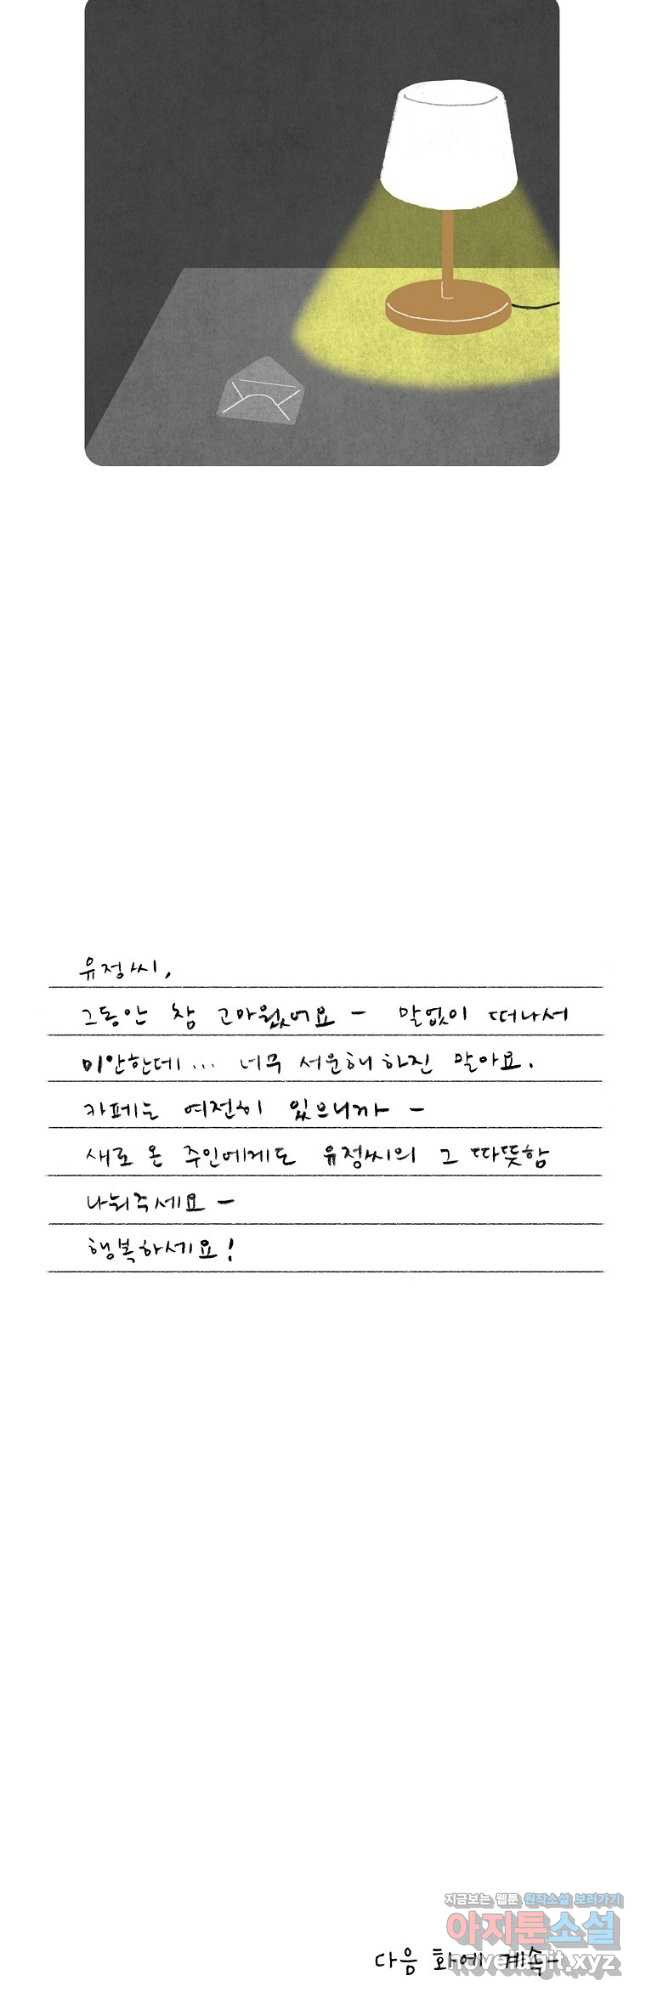 유정씨,
그동안 참 고마웠어요 - 말없이 떠나서
미안한데... 너무 서운해 하진 말아요.
카페는 여전히 있으니까 -
새로 온 주인에게도 유정씨의 그 따뜻함
나눠주세요 -
행복하세요!
지금보는 웹툰 원작소설 보러가기
아지툰소설
novelagit.xyz
다음 화에 계속-